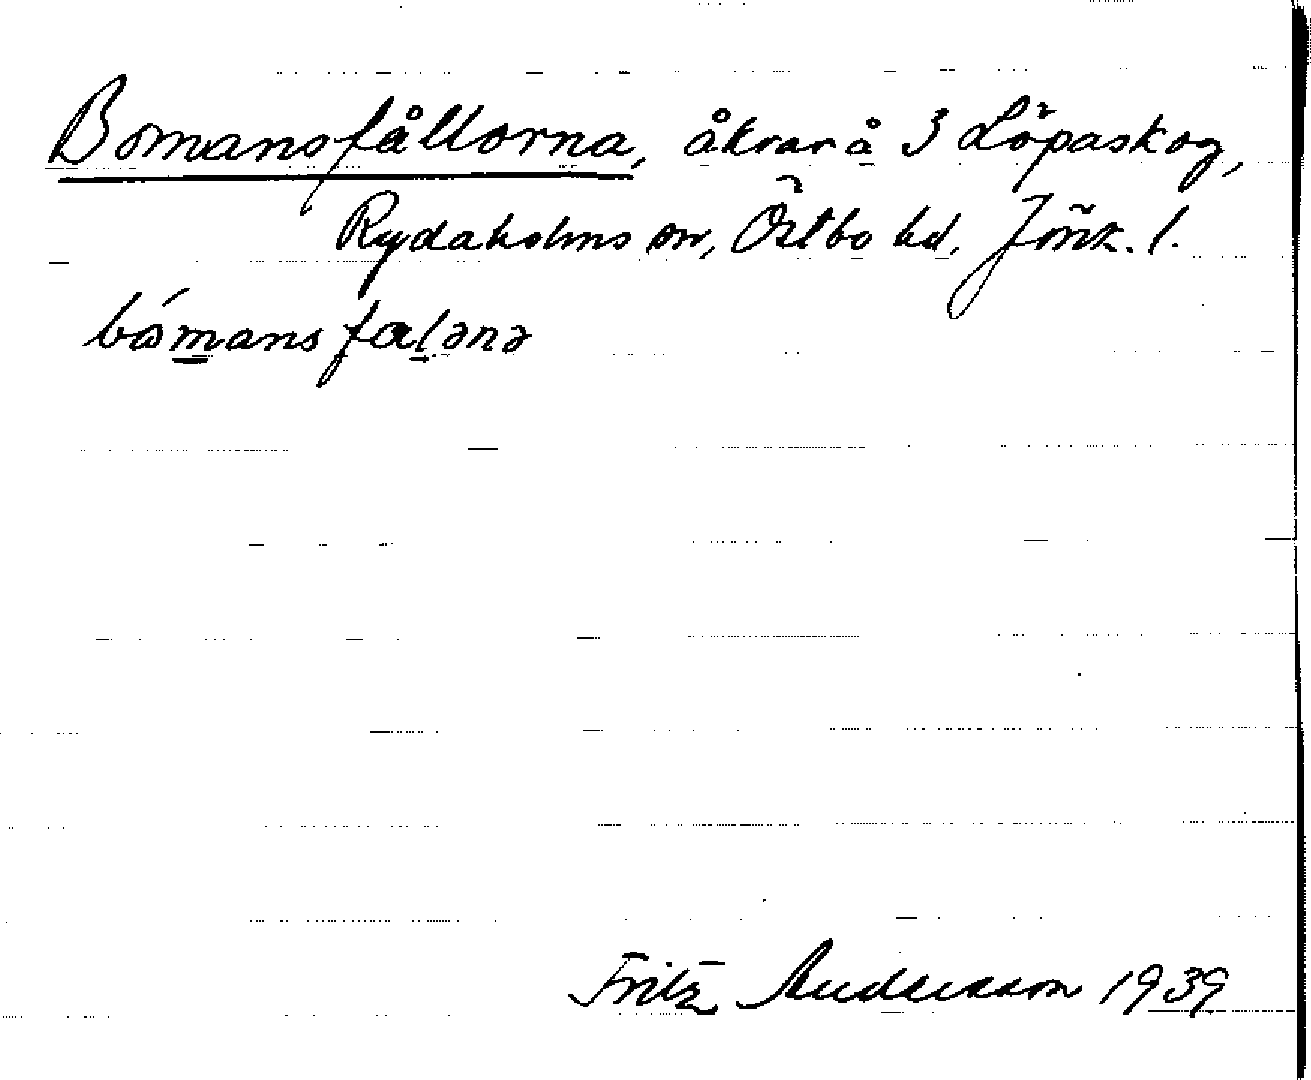 Bomansfållorna, åkrar å 3 Löpaskog,
Rydaholms sn, Östbo hd, Jönk. l.
bómansfaḷənə
Fritz Andersson 1939